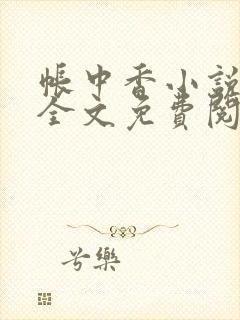 帐中香小說
全文免費閱
兮樂